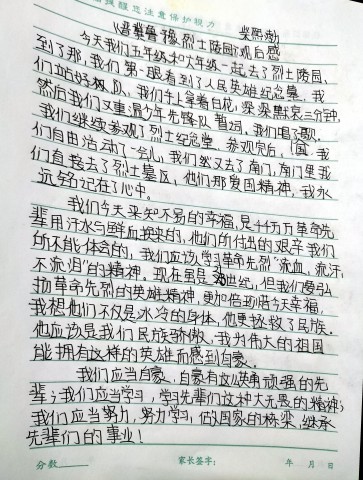 醒您注意保护视力
冀鲁豫烈士陵园观后感
今天我们五年级和六年级一起去了烈士陵园,
到了那,我们第一眼看到了人民英雄纪念碑。我
们站好队,我们手上拿着白花,默哀三分钟,
然后我们又重温少年先锋队誓词,我们唱了歌,
我们继续参观了烈士纪念堂。参观完后,我
们自由活动了一会儿,我们然又去了南门,南门里我
们直接去了烈士墓区,他们那爱国精神,我永
远铭记在了心中。
我们今天来知不易的幸福,是千千万万革命先
辈用汗水与鲜血换来的,他们所付出的艰辛我们
所不能体会的,我们应该学习革命先烈"流血、流汗,
不流泪"的精神。现在虽是世纪,但我们要弘
扬革命先烈的英雄精神,更加倍珍惜今天幸福,
我想他们不仅是冰冷的身体,他更拯救了民族。
他应该是我们民族骄傲,我为伟大的祖国
能拥有这样的英雄而感到自豪。
我们应当自豪,自豪有这以英勇顽强的先
辈;我们应当学习,学习先辈们这种大无畏的精神;
我们应当努力,努力学习,做国家的栋梁,继承
先辈们的事业!
分数 家长签字: 年 月 日